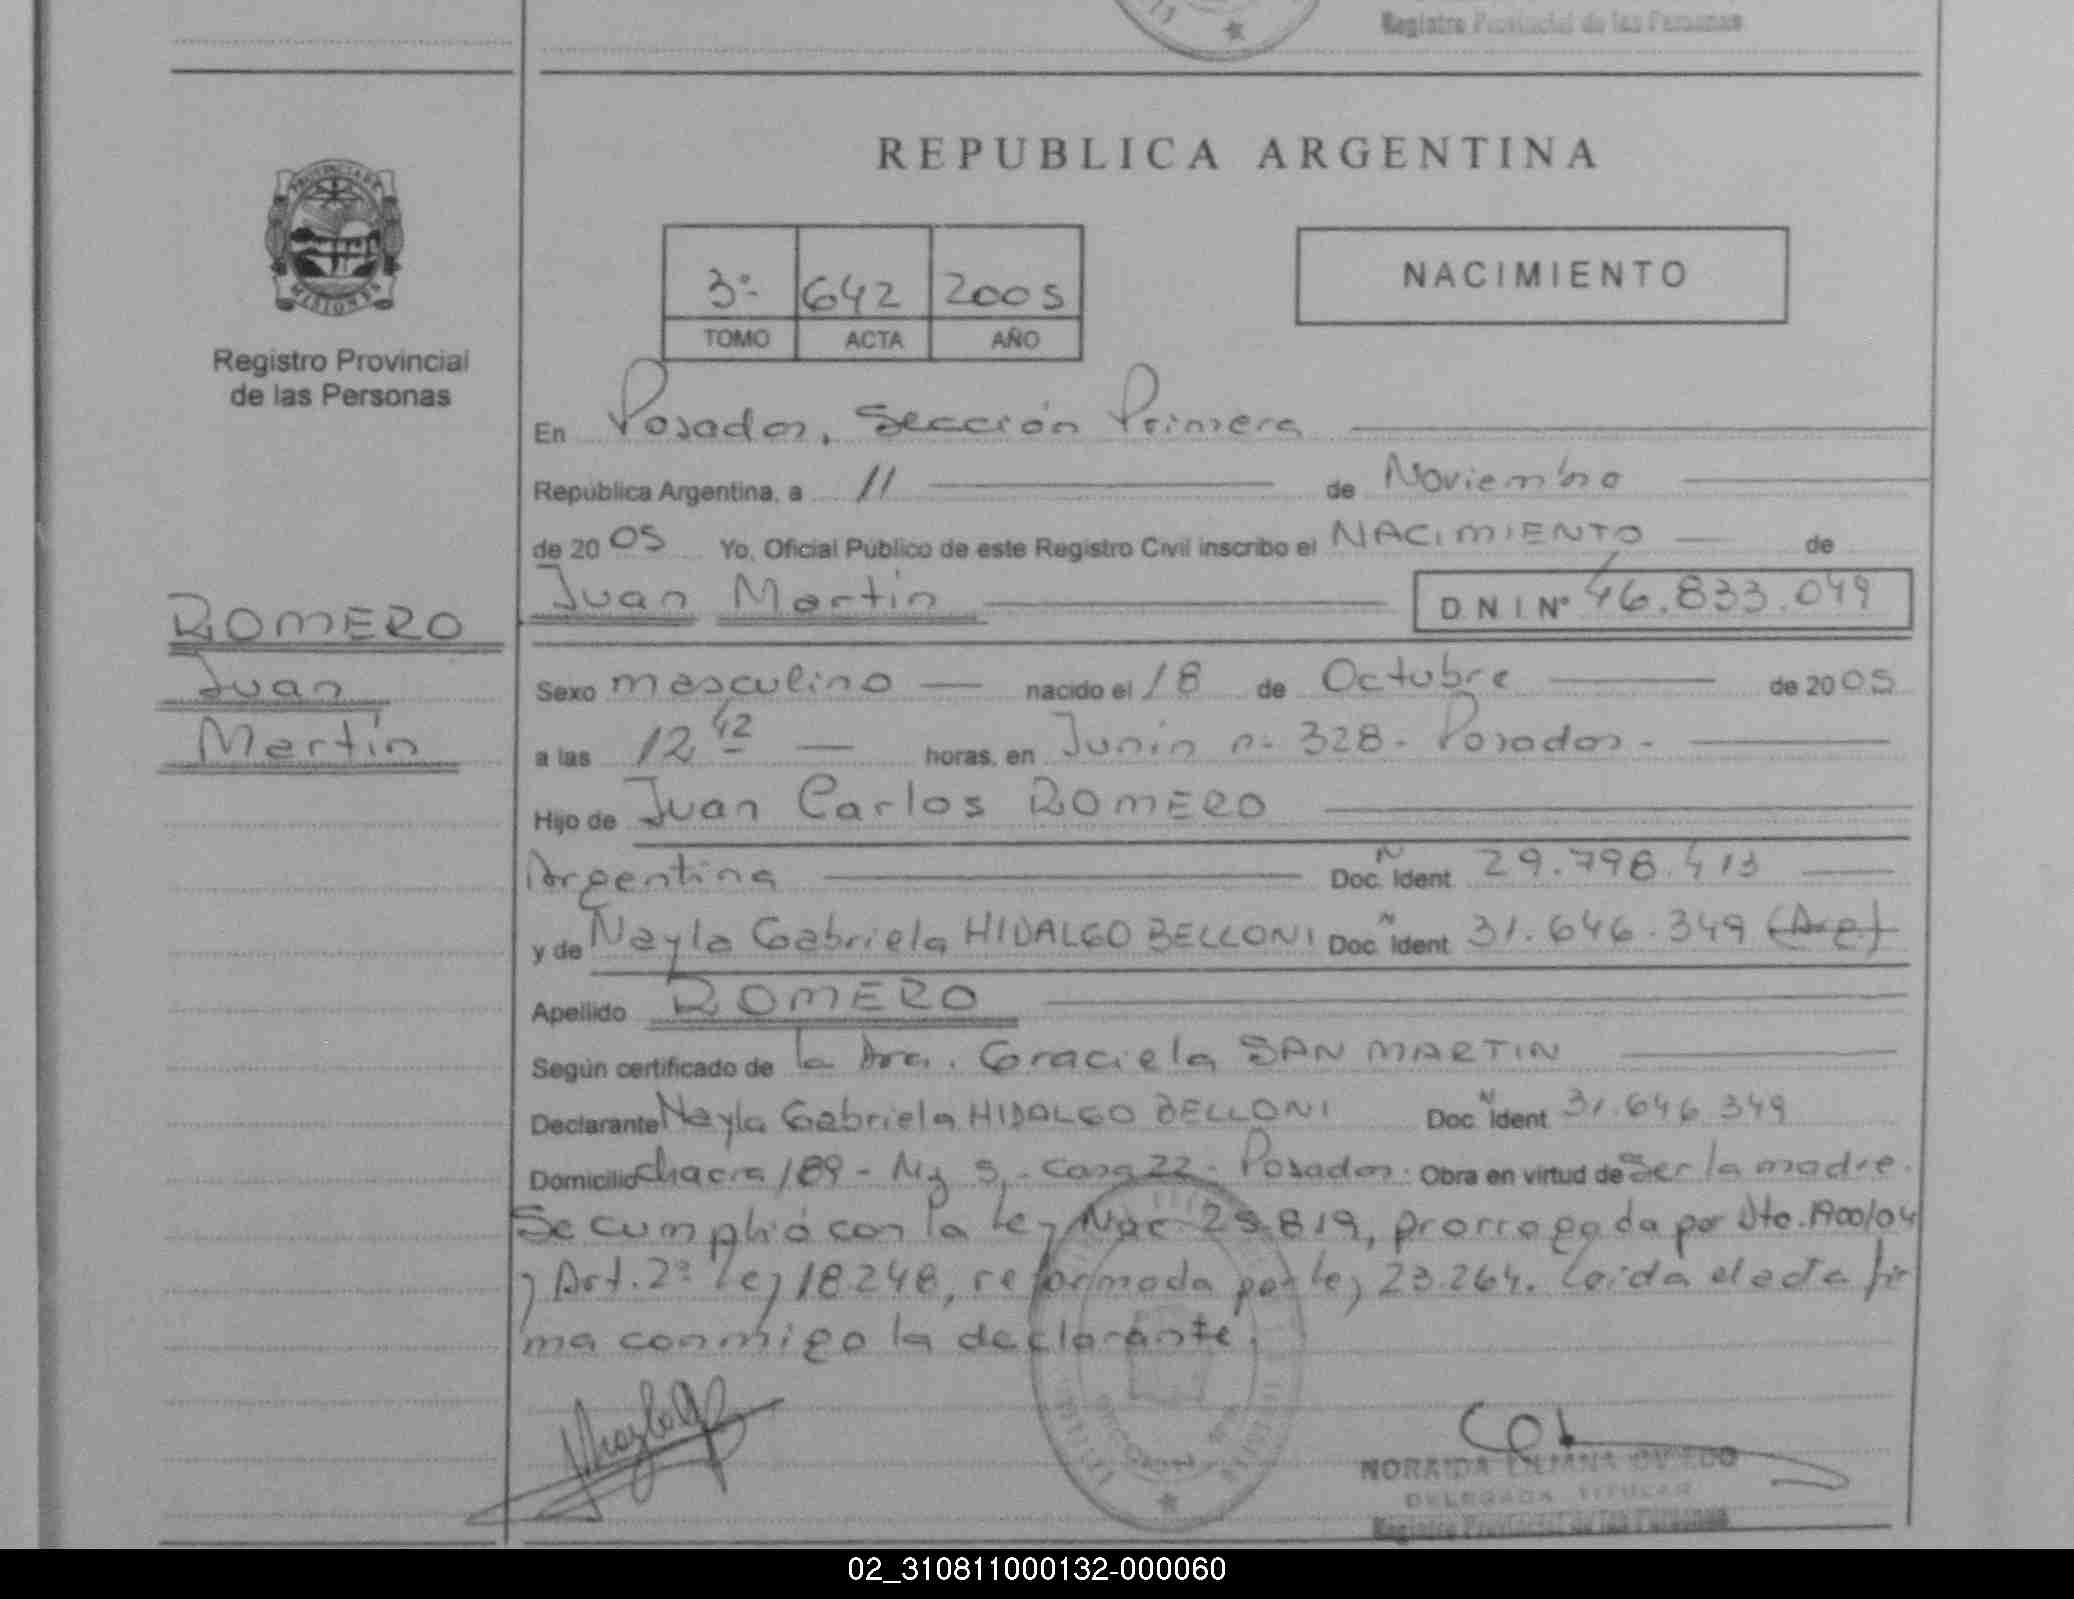 Registro Provincial de las Personas
REPUBLICA ARGENTINA
PROVINCIA DE
MISIONES
Registro Provincial
de las Personas
3º 642 2005
TOMO ACTA AÑO
NACIMIENTO
En Posadas, Sección Primera
República Argentina, a 11 de Noviembre
de 2005 Yo, Oficial Público de este Registro Civil inscribo el NACIMIENTO de
Juan Martín D N I Nº 46.833.049
ROMERO
Juan
Martín
Sexo masculino nacido el 18 de Octubre de 2005
a las 12 42 horas, en Junín nº 328 - Posadas -
Hijo de Juan Carlos ROMERO
Argentina Doc. N Ident 29.798.413
y de Nayla Gabriela HIDALGO BELLONI Doc. N Ident 31.646.349 (Arg)
Apellido ROMERO
Según certificado de la Dra. Graciela SAN MARTIN
Declarante Nayla Gabriela HIDALGO BELLONI Doc. N Ident 31.646.349
Domicilio Chacra 189 - Mz 5 - Casa 22 - Posadas. Obra en virtud de ser la madre.
Se cumplió con la Ley Nac. 25.819, prorrogada por Dto. 1900/04
y Art. 2º Ley 18.248, reformada por Ley 23.264. Leída el acta fir
ma conmigo la declarante.
NORAIDA LILIANA OVIEDO
DELEGADA TITULAR
Registro Provincial de las Personas
02_310811000132-000060